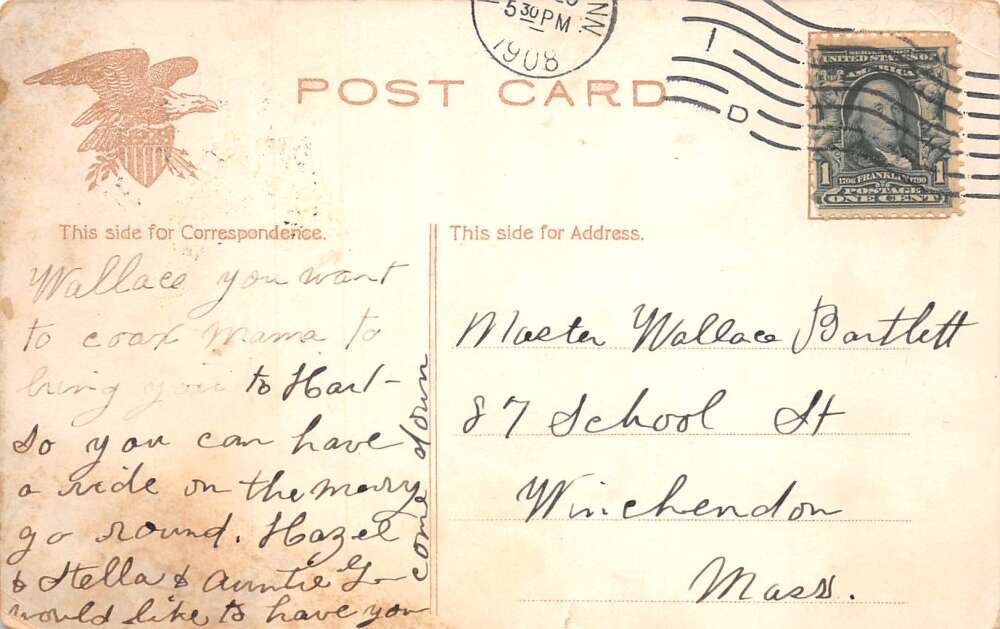 NN.
5 30 PM
1908
1
D
POST CARD
SERIES 1902
UNITED STATES OF
AMERICA
1 1706 FRANKLIN 1790 1
POSTAGE
ONE CENT
This side for Correspondence.
Wallace you want
to coax Mama to
bring you to Hart-
so you can have
a ride on the merry
go round. Hazel
& Stella & Auntie G-
would like to have you
come down
This side for Address.
Master Wallace Bartlett
87 School St
Winchendon
Mass.